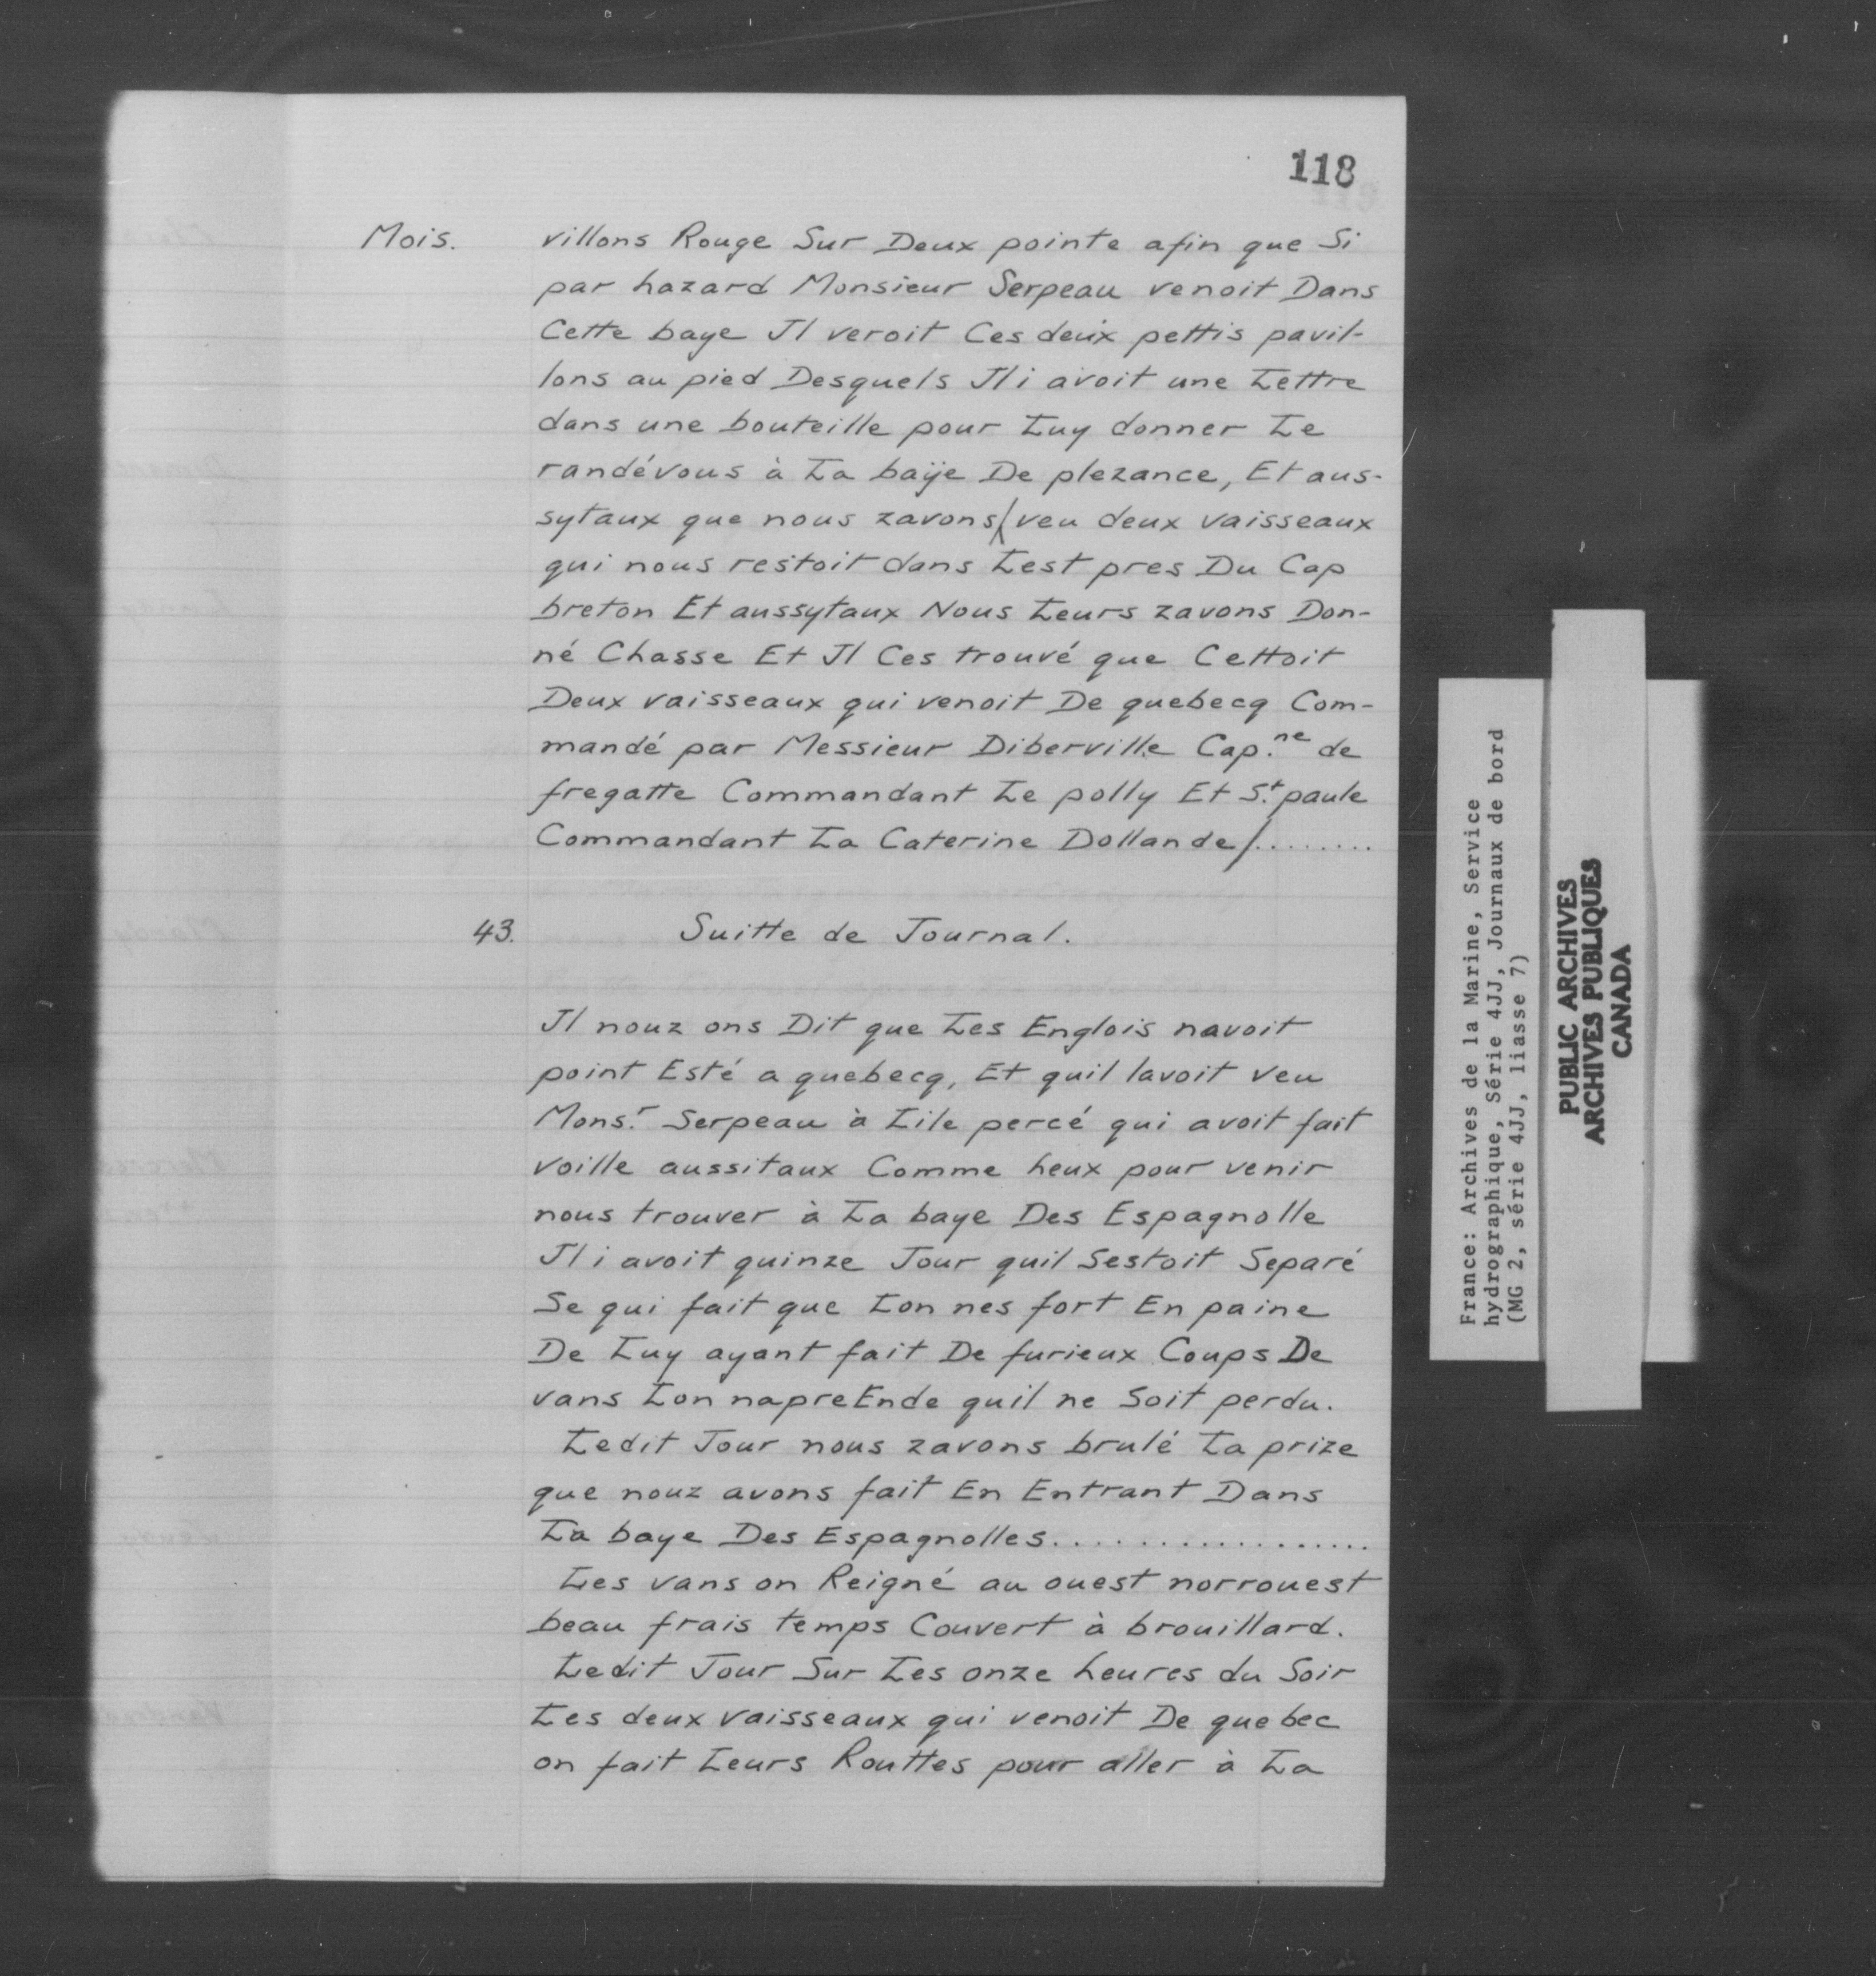 118
Mois.
villons Rouge Sur Deux pointe afin que Si
par hazard Monsieur Serpeau venoit Dans
Cette baye Jl veroit Ces deux pettis pavil-
lons au pied Desquels Jl i avoit une Lettre
dans une bouteille pour Luy donner Le
randévous à La baÿe De plezance, Et aus-
sytaux que nous zavons ( veu deux vaisseaux
qui nous restoit dans Lest pres Du Cap
breton Et aussytaux Nous Leurs zavons Don-
né Chasse Et Jl Ces trouvé que Cettoit
Deux vaisseaux qui venoit De quebecq Com-
mandé par Messieur Diberville Cap.ne de
fregatte Commandant Le polly Et St. paule
Commandant La Caterine Dollande/........
43. Suitte de Journal.
Jl nouz ons Dit que Les Englois navoit
point Esté a quebecq, Et quil lavoit veu
Mons.r Serpeau à Lile percé qui avoit fait
voille aussitaux Comme heux pour venir
nous trouver à La baye Des Espagnolle
Jl i avoit quinze Jour quil Sestoit Separé
Se qui fait que Lon nes fort En paine
De Luy ayant fait De furieux Coups De
vans Lon napreEnde quil ne Soit perdu.
Ledit Jour nous zavons brulé La prize
que nouz avons fait En Entrant Dans
La baye Des Espagnolles...................
Les vans on Reigné au ouest norrouest
beau frais temps Couvert à brouillard.
Ledit Jour Sur Les onze heures du Soir
Les deux vaisseaux qui venoit De quebec
on fait Leurs Routtes pour aller à La
France: Archives de la Marine, Service
hydrographique, Série 4JJ, Journaux de bord
(MG 2, série 4JJ, liasse 7)
PUBLIC ARCHIVES
ARCHIVES PUBLIQUES
CANADA